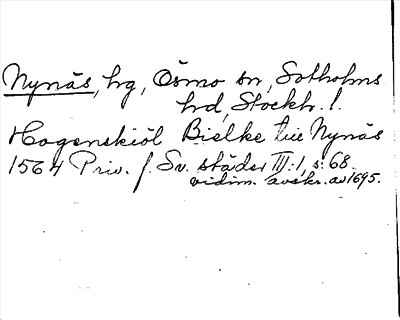 Nynäs, hg, Ösmo sn, Sotholms
hd, Stockh. l.
Hogenskiöl Bielke till Nynäs
1564 Priv. f. Sv. städer III:1, s. 68.
vidim. avskr. av 1695.